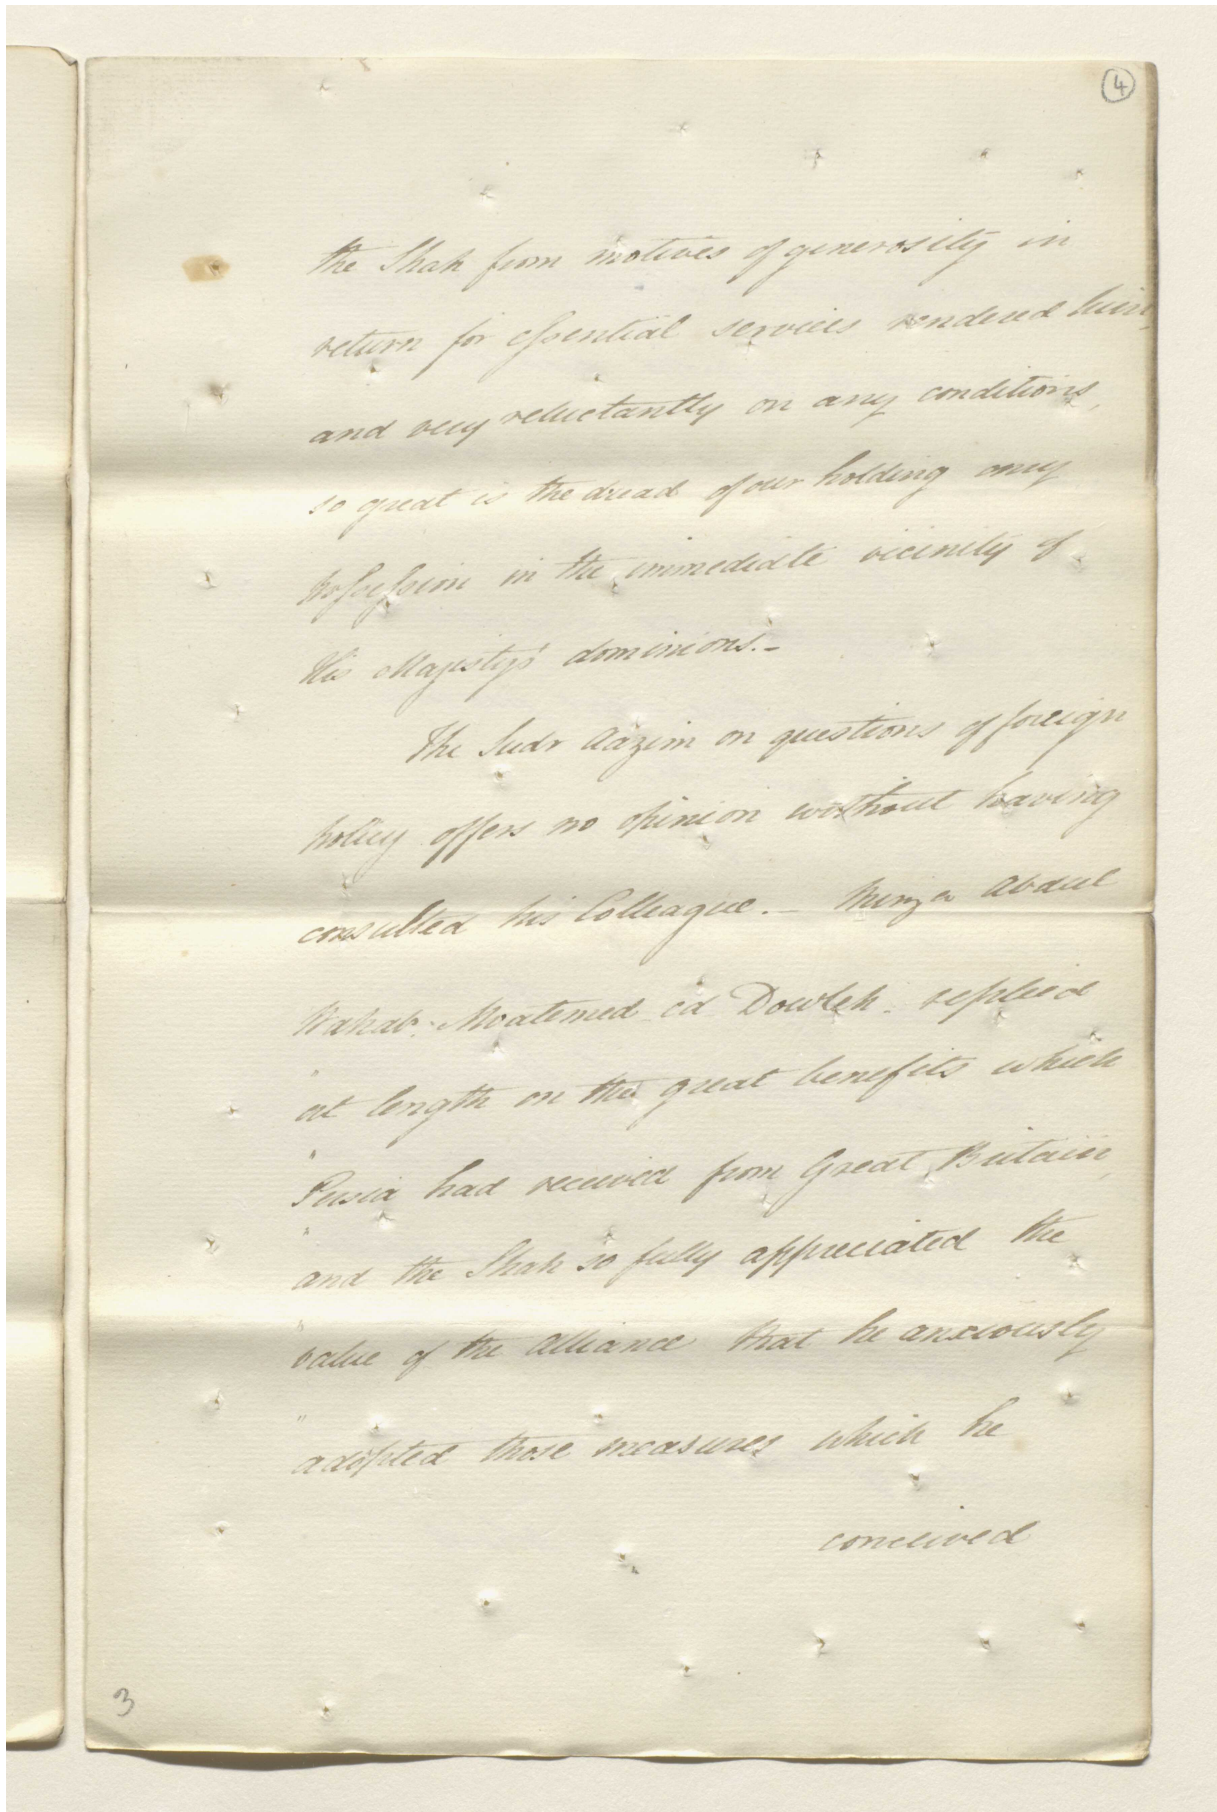 4
the Shah from motives of generosity in
return for essential services rendered him,
and very reluctantly on any conditions,
so great is the dread of our holding any
possession in the immediate vicinity of
His Majesty's dominions.-
The Sudr Aazim on questions of foreign
policy offers no opinion without having
consulted his Colleague. - Mirza Abdul
Wahab. Moatemed ed Dowleh. replied
" at length on the great benefits which
" Persia had received from Great Britain,
" and the Shah so fully appreciated the
" value of the Alliance that he anxiously
" adopted those measures which he
conceived
3